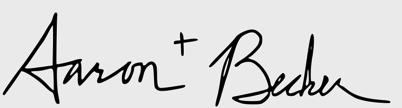 Aaron + Becker